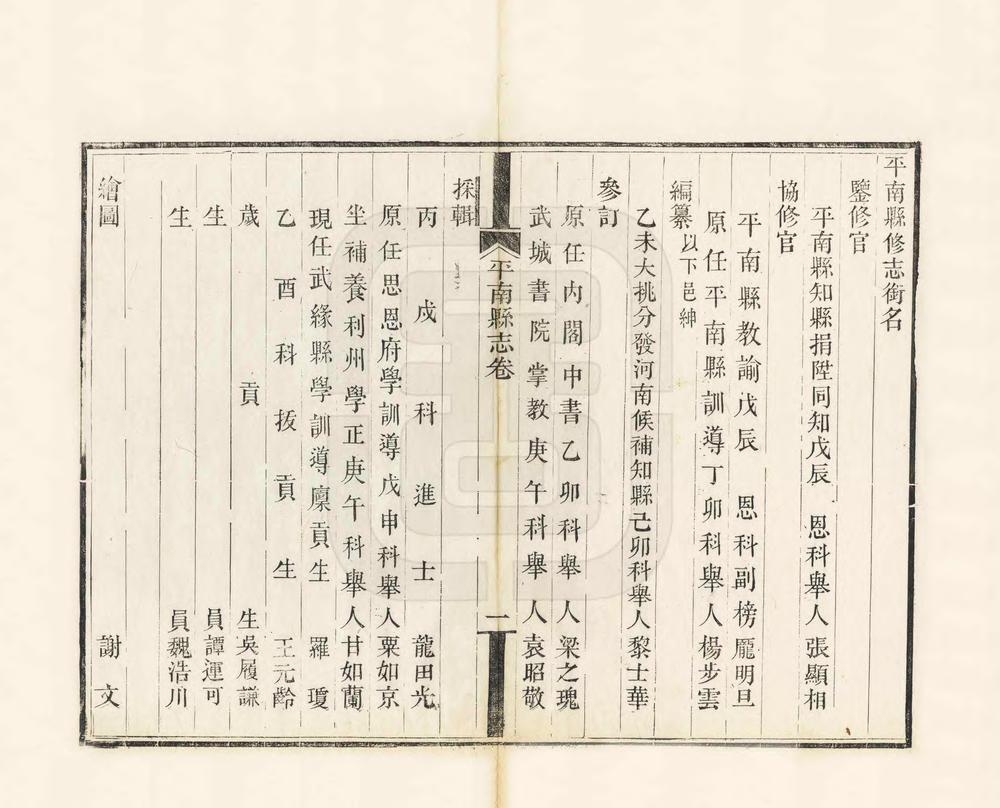 平南縣修志銜名
鑒修官
平南縣知縣捐陞同知戊辰 恩科舉人張顯相
協修官
平南縣教諭戊辰 恩科副榜龎明旦
原任平南縣訓導丁卯科舉人楊步雲
編纂以下邑紳
乙未大挑分發河南候補知縣己卯科舉人黎士華
參訂
原任內閣中書乙卯科舉人梁之瑰
武城書院掌教庚午科舉人袁昭敬
平南縣志卷
一
採輯
丙戌科進士龍田光
原任思恩府學訓導戊申科舉人粟如京
坐補養利州學正庚午科舉人甘如蘭
現任武緣縣學訓導廩貢生羅瓊
乙酉科拔貢生王元齡
歲貢生吳履謙
生員譚運可
生員魏浩川
繪圖
謝文